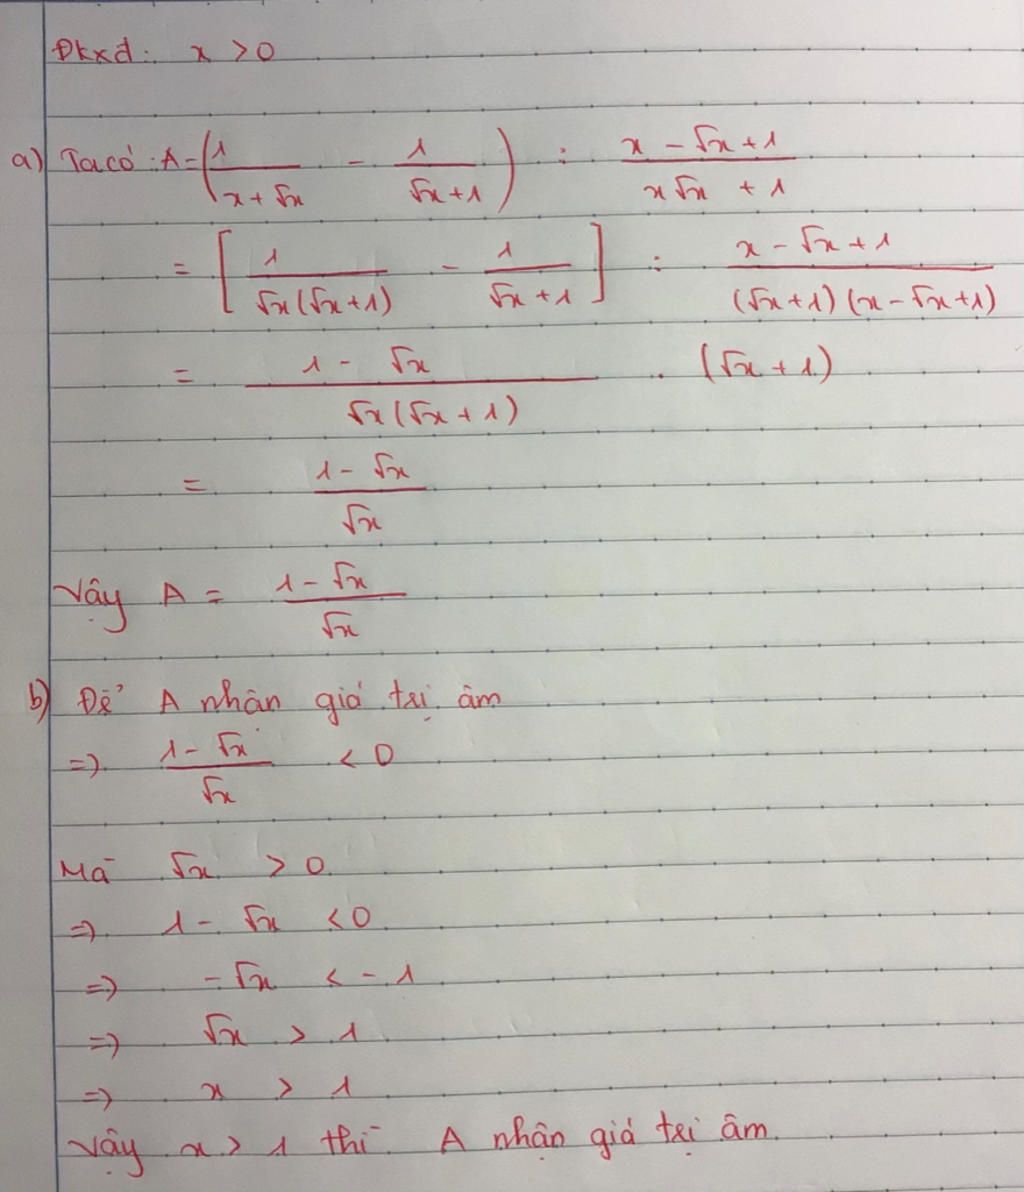 Đkxđ: x > 0
a) Ta có: A = (1/(x + √x) - 1/(√x + 1)) : (x - √x + 1)/(x√x + 1)
= [1/(√x(√x + 1)) - 1/(√x + 1)] : (x - √x + 1)/((√x + 1)(x - √x + 1))
= (1 - √x)/(√x(√x + 1)) . (√x + 1)
= (1 - √x)/√x
Vậy A = (1 - √x)/√x
b) Để A nhận giá trị âm
=> (1 - √x)/√x < 0
Mà √x > 0
=> 1 - √x < 0
=> -√x < -1
=> √x > 1
=> x > 1
Vậy x > 1 thì A nhận giá trị âm.